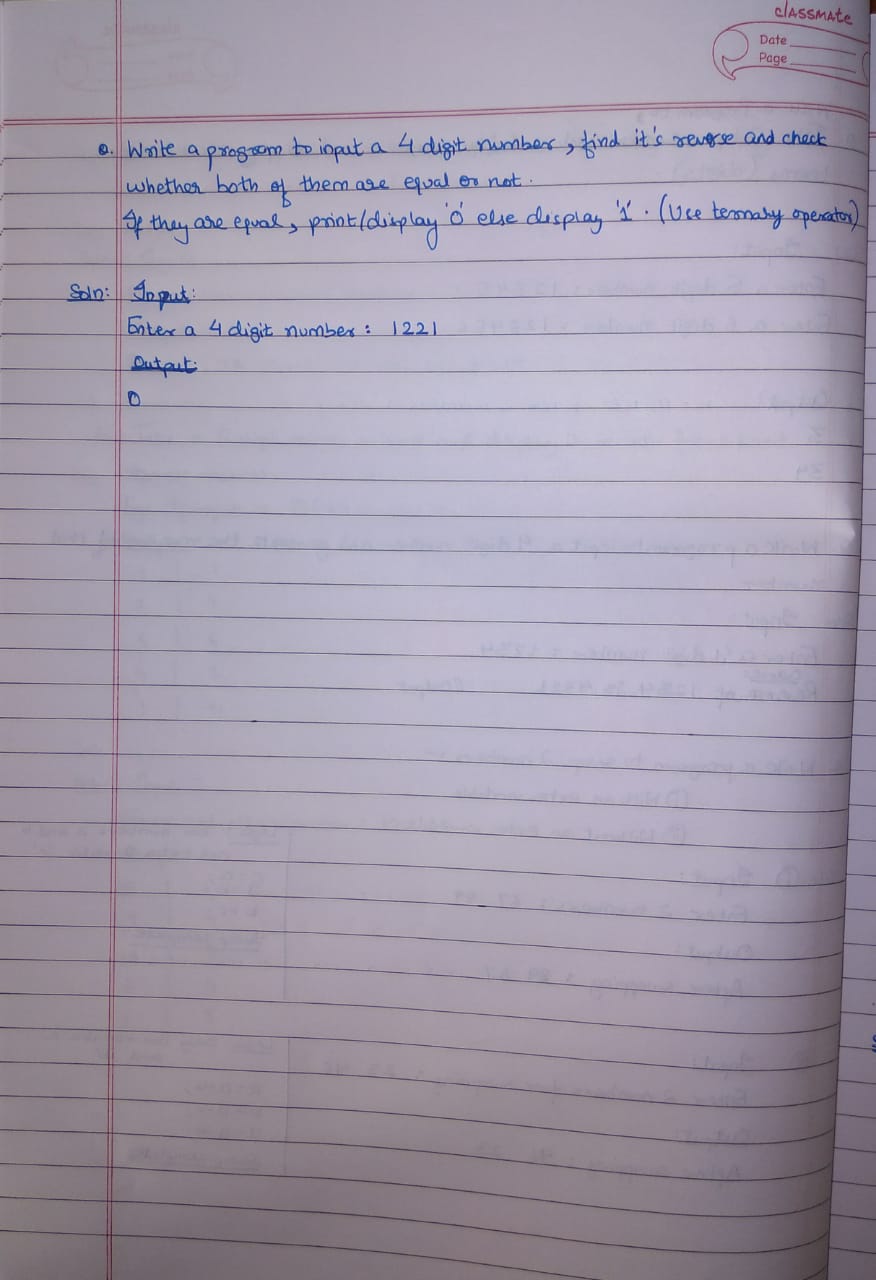 classmate
Date
Page
Q. Write a program to input a 4 digit number, find it's reverse and check
whether both of them are equal or not.
If they are equal, print/display '0' else display '1'. (Use ternary operator)
Soln: Input:
Enter a 4 digit number: 1221
Output:
0